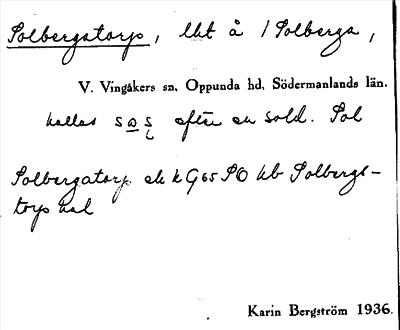 Solbergatorp, lht å 1 Solberga,
V. Vingåkers sn, Oppunda hd, Södermanlands län.
kallas sas efter en sold. Sol
Solbergatorp ek k G65 SO kb Solbergs-
torp hal
Karin Bergström 1936.